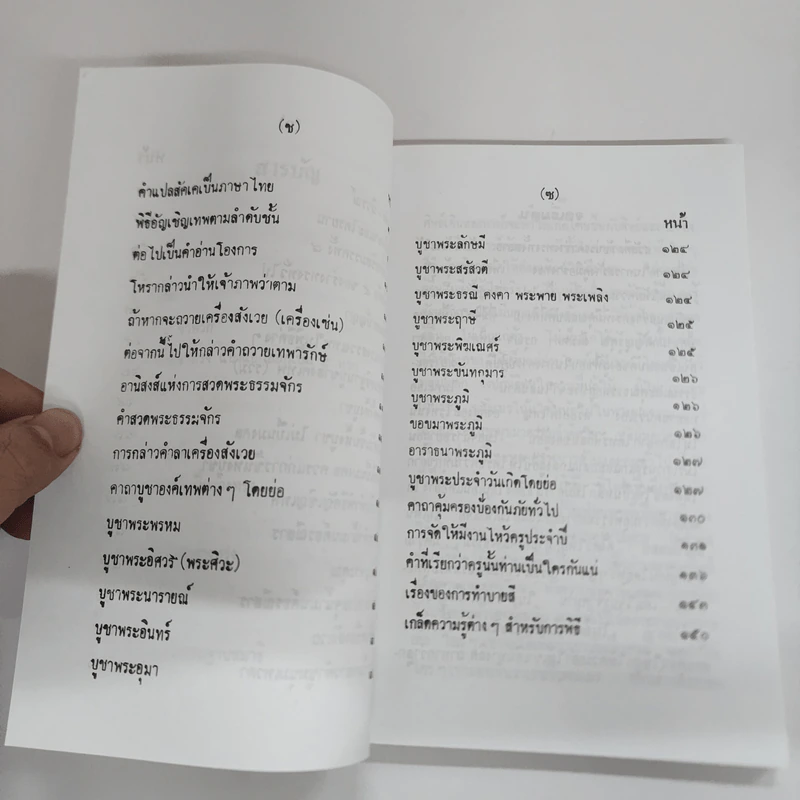 (ช)
คำแปลสัคเคเป็นภาษาไทย
พิธีอัญเชิญเทพตามลำดับชั้น
ต่อไปเป็นคำอ่านโองการ
โหรากล่าวนำให้เจ้าภาพว่าตาม
ถ้าหากจะถวายเครื่องสังเวย (เครื่องเซ่น)
ต่อจากนี้ไปให้กล่าวคำถวายเทพารักษ์
อานิสงส์แห่งการสวดพระธรรมจักร
คำสวดพระธรรมจักร
การกล่าวคำลาเครื่องสังเวย
คาถาบูชาองค์เทพต่างๆ โดยย่อ
บูชาพระพรหม
บูชาพระอิศวร (พระศิวะ)
บูชาพระนารายณ์
บูชาพระอินทร์
บูชาพระอุมา
(ซ)
หน้า
บูชาพระลักษมี ๑๒๔
บูชาพระสรัสวดี ๑๒๔
บูชาพระธรณี คงคา พระพาย พระเพลิง ๑๒๔
บูชาพระฤาษี ๑๒๕
บูชาพระพิฆเณศร์ ๑๒๕
บูชาพระขันทกุมาร ๑๒๖
บูชาพระภูมิ ๑๒๖
ขอขมาพระภูมิ ๑๒๖
อาราธนาพระภูมิ ๑๒๗
บูชาพระประจำวันเกิดโดยย่อ ๑๒๗
คาถาคุ้มครองป้องกันภัยทั่วไป ๑๓๐
การจัดให้มีงานไหว้ครูประจำปี ๑๓๑
คำที่เรียกว่าครูนั้นท่านเป็นใครกันแน่ ๑๓๖
เรื่องของการทำบายสี ๑๔๓
เกล็ดความรู้ต่างๆ สำหรับการพิธี ๑๕๐